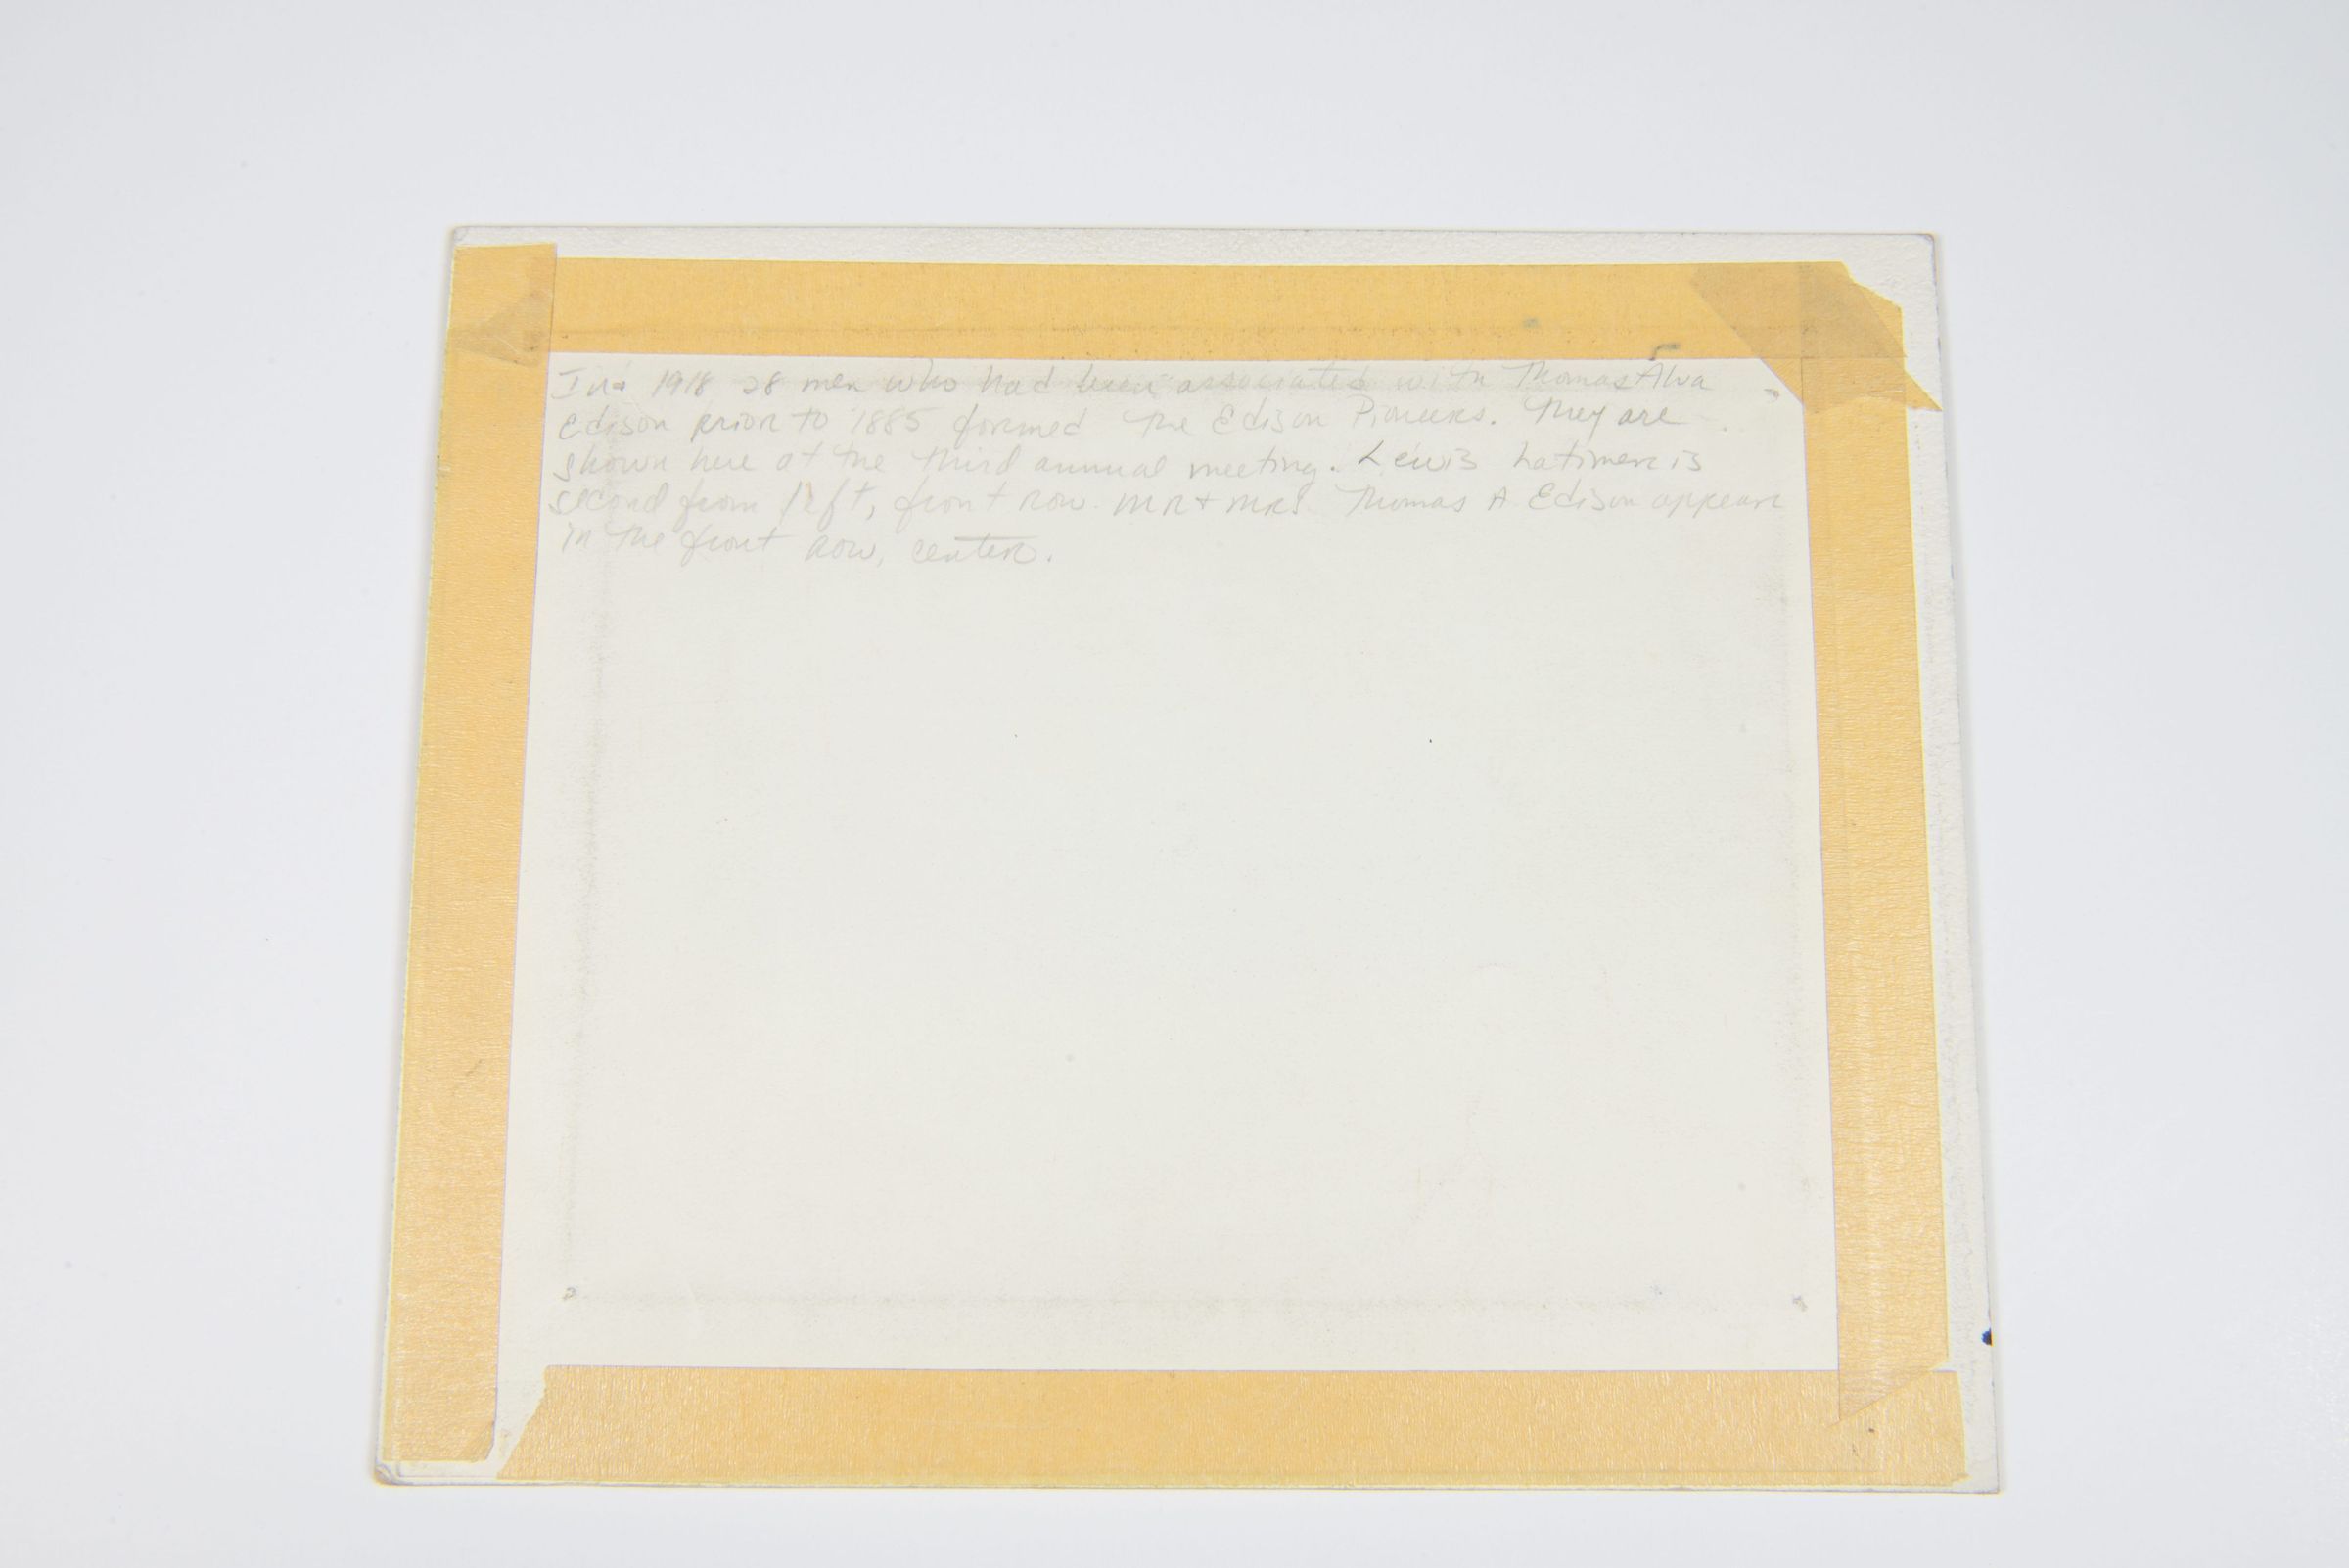 In 1918 28 men who had been associated with Thomas Alva
Edison prior to 1885 formed the Edison Pioneers. They are
shown here at the third annual meeting. Lewis Latimer is
second from left, front row. Mr + Mrs. Thomas A Edison appear
in the front row, center.